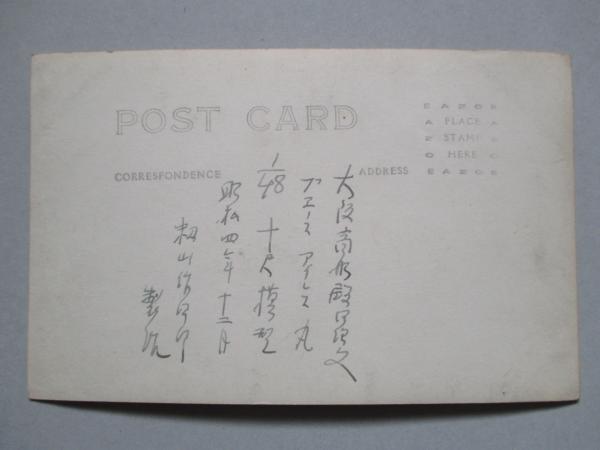 POST CARD
CORRESPONDENCE
ADDRESS
PLACE
STAMP
HERE
EAZOE
EAZOE
大阪商船殿御註文
ブエノスアイレス丸
1/48 十尺模型
昭和四年十二月
籾山作
製